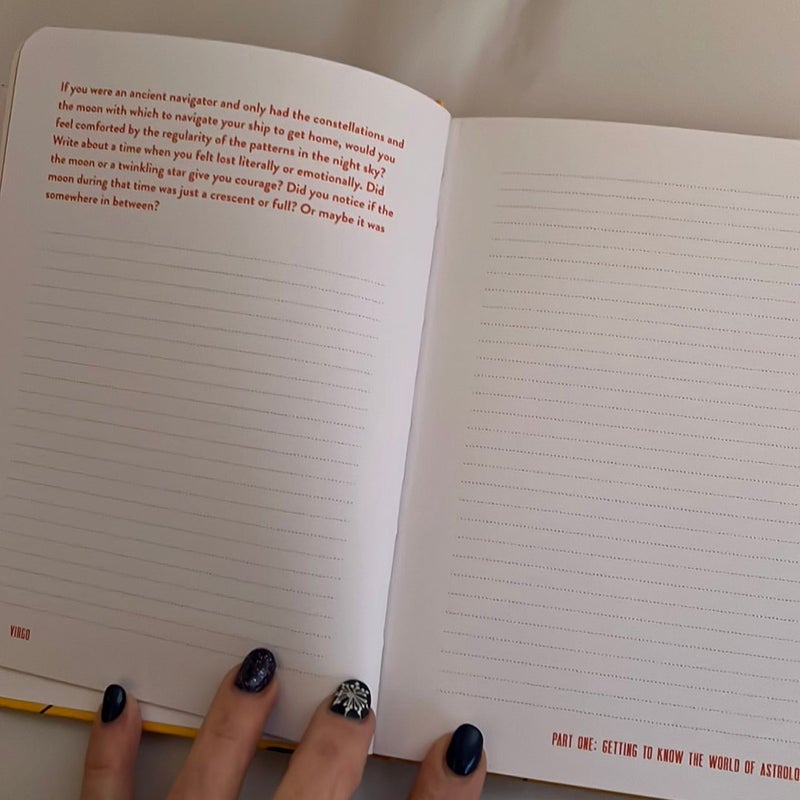 If you were an ancient navigator and only had the constellations and
the moon with which to navigate your ship to get home, would you
feel comforted by the regularity of the patterns in the night sky?
Write about a time when you felt lost literally or emotionally. Did
the moon or a twinkling star give you courage? Did you notice if the
moon during that time was just a crescent or full? Or maybe it was
somewhere in between?
VIRGO
PART ONE: GETTING TO KNOW THE WORLD OF ASTROLO